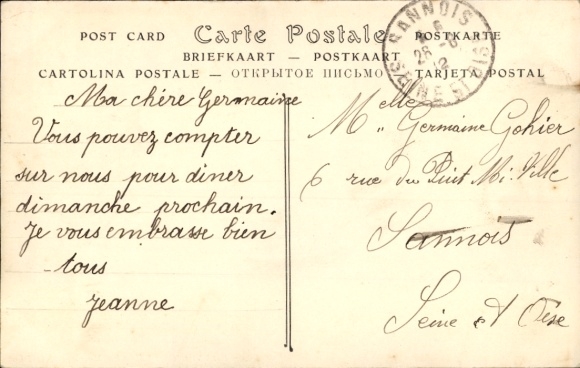 POST CARD Carte Postale POSTKARTE
BRIEFKAART — POSTKAART
CARTOLINA POSTALE — ОТКРЫТОЕ ПИСЬМО TARJETA POSTAL
SANNOIS
28 -6
12
SEINE ET OISE
Ma chére Germaine
Vous pouvez compter
sur nous pour diner
dimanche prochain.
Je vous embrasse bien
tous
Jeanne
Melle Germaine Gohier
6 rue du Puit Mi-Ville
Sannois
Seine et Oise